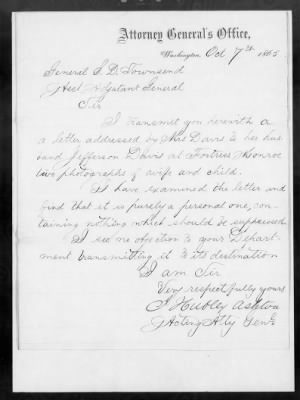 Attorney General's Office,
Washington, Oct 7th 1865.
General E. D. Townsend
Asst Adjutant General
Sir
I transmit you herewith a
a letter addressed by Mrs Davis to her hus
band Jefferson Davis at Fortress Monroe
two photographs of wife and child.
I have examined the letter and
find that it is purely a personal one, con-
taining nothing which should be suppressed
I see no objection to your Depart-
ment transmitting it to its destination
I am Sir
Very respectfully yours
J Hubley Ashton
Acting Atty Genl